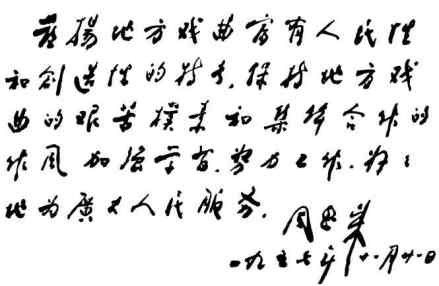 發揚地方戏曲富有人民性
和创造性的特长,保持地方戏
曲的艰苦樸素和集体合作的
作风 加强学習,努力工作,好々
地为廣大人民服务.
周恩来
一九五七年十一月廿日